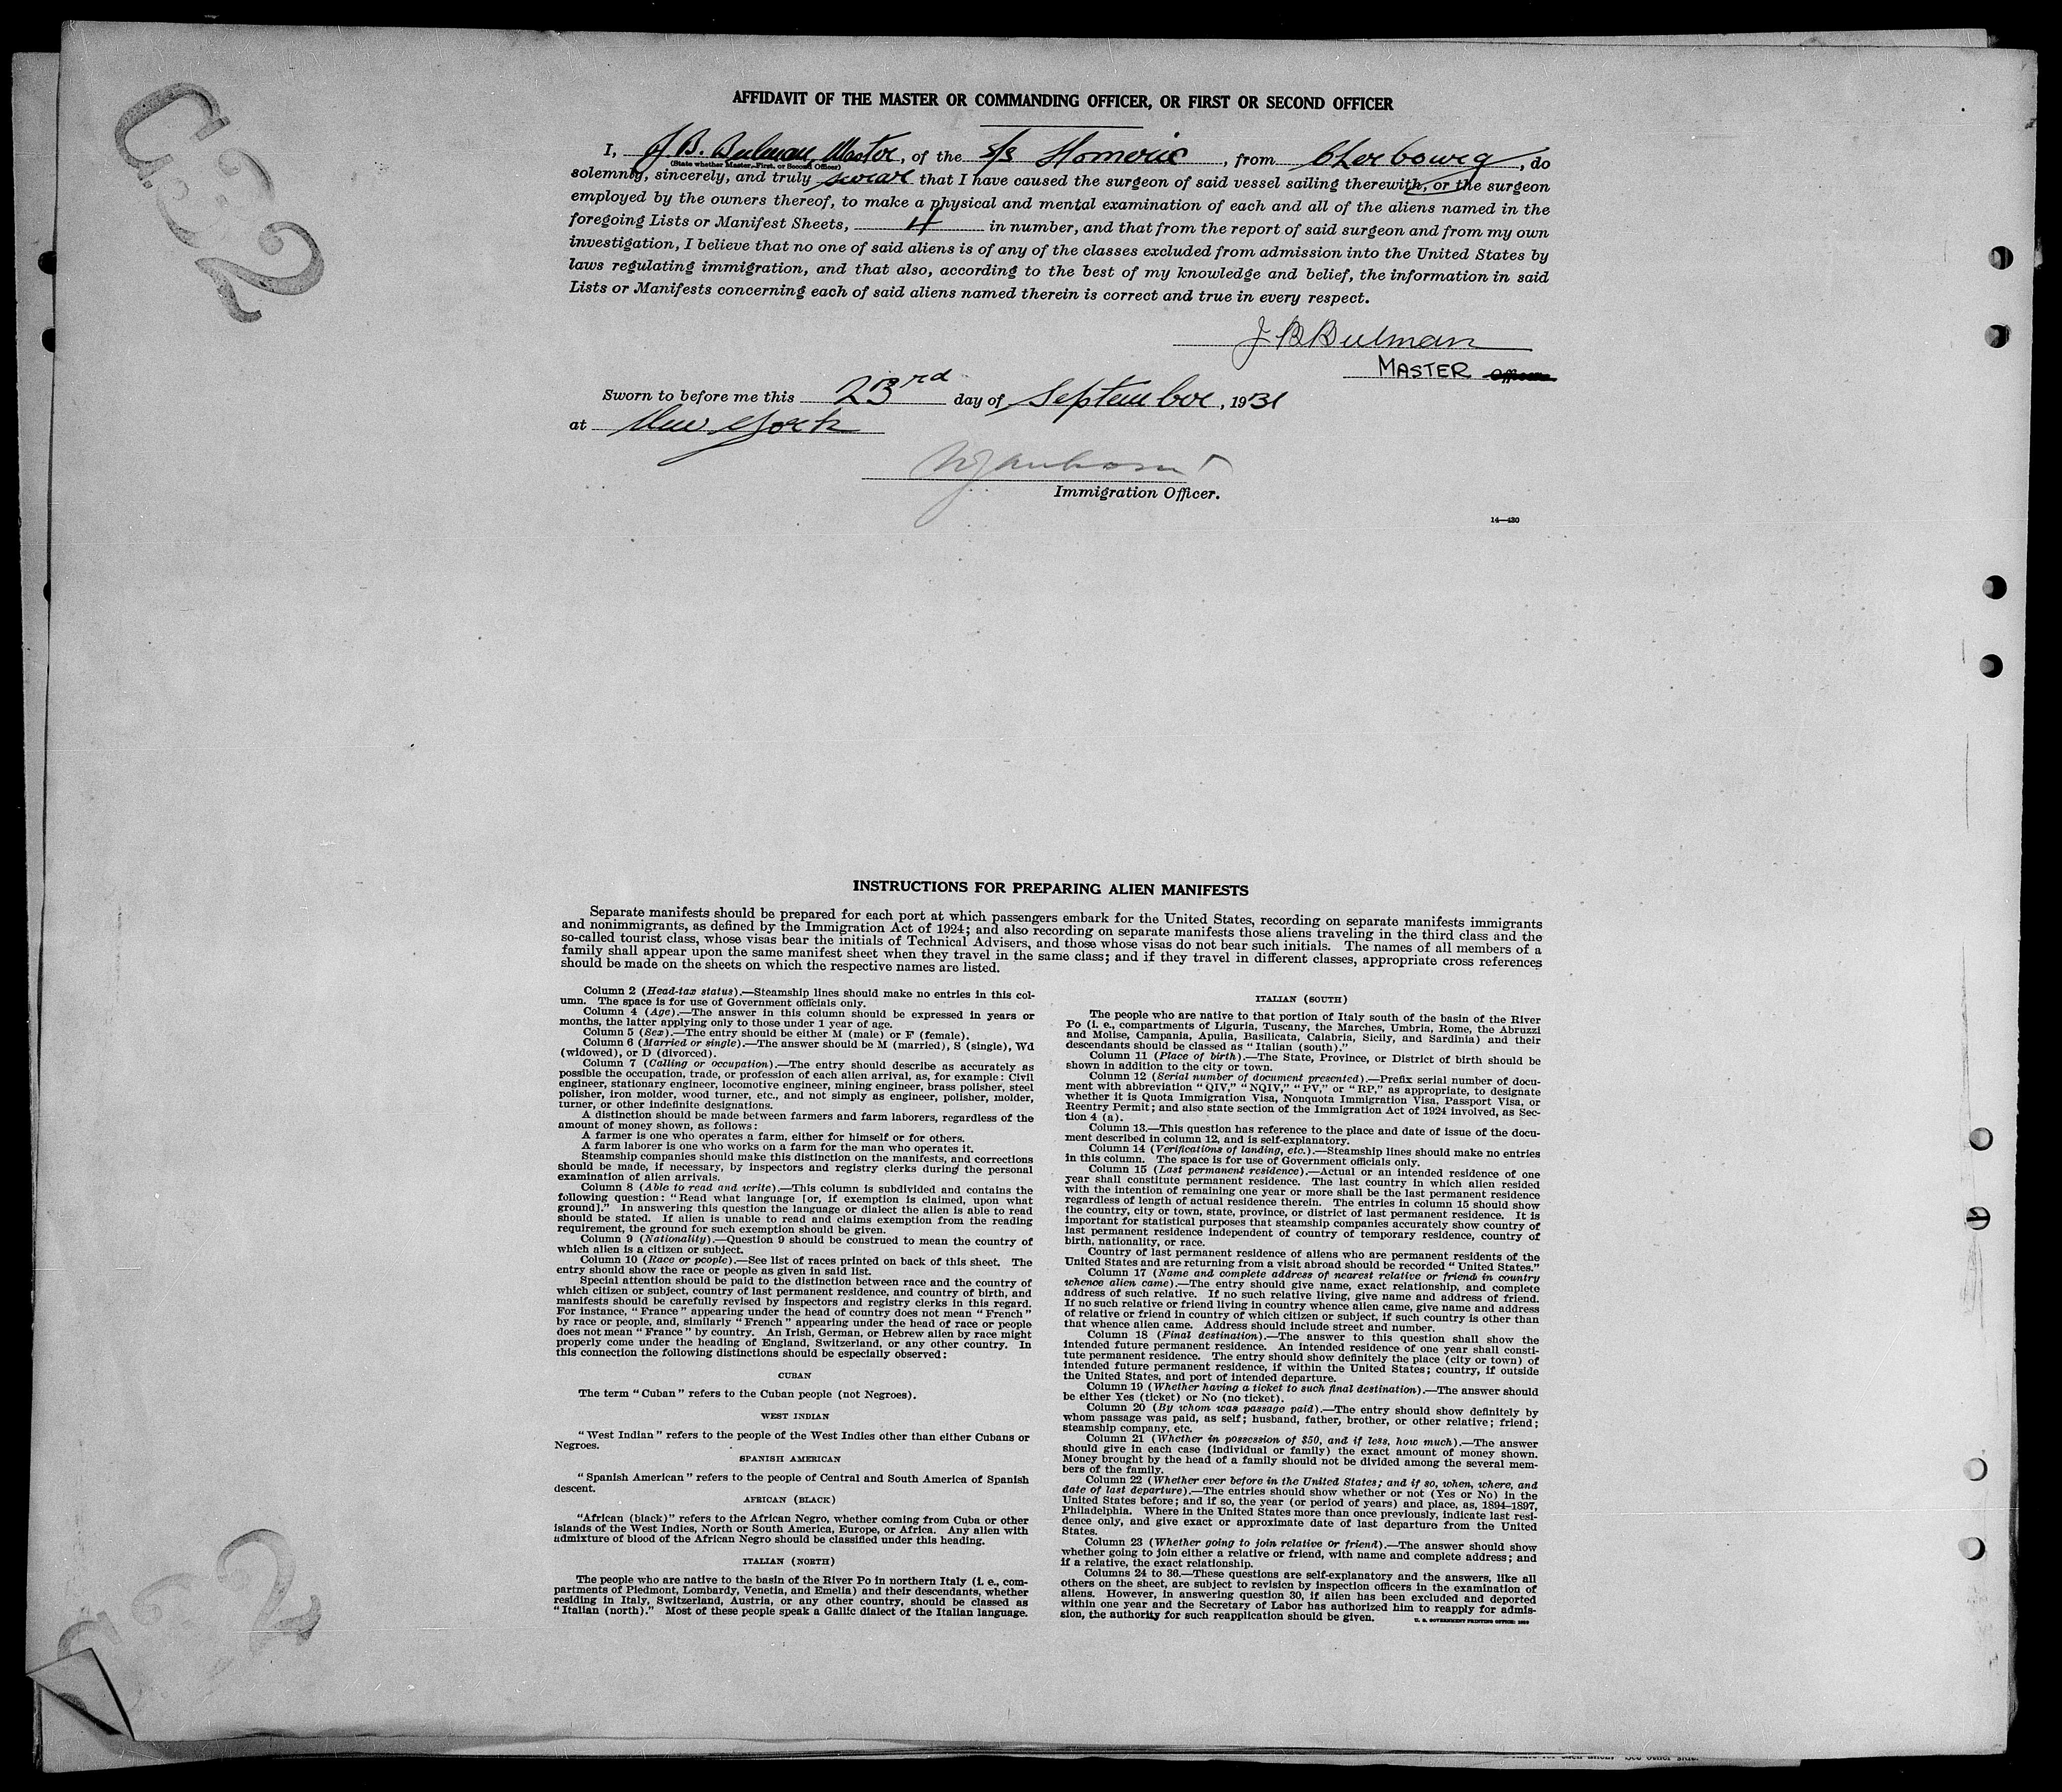 G32
AFFIDAVIT OF THE MASTER OR COMMANDING OFFICER, OR FIRST OR SECOND OFFICER
I, J. B. Bulman, Master, of the s/s Homeric, from Cherbourg, do
(State whether Master, First, or Second Officer)
solemnly, sincerely, and truly swear that I have caused the surgeon of said vessel sailing therewith, or the surgeon
employed by the owners thereof, to make a physical and mental examination of each and all of the aliens named in the
foregoing Lists or Manifest Sheets, 4 in number, and that from the report of said surgeon and from my own
investigation, I believe that no one of said aliens is of any of the classes excluded from admission into the United States by
laws regulating immigration, and that also, according to the best of my knowledge and belief, the information in said
Lists or Manifests concerning each of said aliens named therein is correct and true in every respect.
J B Bulman
MASTER Officer.
Sworn to before me this 23rd day of September, 1931
at New York
Immigration Officer.
14—430
INSTRUCTIONS FOR PREPARING ALIEN MANIFESTS
Separate manifests should be prepared for each port at which passengers embark for the United States, recording on separate manifests immigrants
and nonimmigrants, as defined by the Immigration Act of 1924; and also recording on separate manifests those aliens traveling in the third class and the
so-called tourist class, whose visas bear the initials of Technical Advisers, and those whose visas do not bear such initials. The names of all members of a
family shall appear upon the same manifest sheet when they travel in the same class; and if they travel in different classes, appropriate cross references
should be made on the sheets on which the respective names are listed.
Column 2 (Head-tax status).—Steamship lines should make no entries in this col-
umn. The space is for use of Government officials only.
Column 4 (Age).—The answer in this column should be expressed in years or
months, the latter applying only to those under 1 year of age.
Column 5 (Sex).—The entry should be either M (male) or F (female).
Column 6 (Married or single).—The answer should be M (married), S (single), Wd
(widowed), or D (divorced).
Column 7 (Calling or occupation).—The entry should describe as accurately as
possible the occupation, trade, or profession of each alien arrival, as, for example: Civil
engineer, stationary engineer, locomotive engineer, mining engineer, brass polisher, steel
polisher, iron molder, wood turner, etc., and not simply as engineer, polisher, molder,
turner, or other indefinite designations.
A distinction should be made between farmers and farm laborers, regardless of the
amount of money shown, as follows:
A farmer is one who operates a farm, either for himself or for others.
A farm laborer is one who works on a farm for the man who operates it.
Steamship companies should make this distinction on the manifests, and corrections
should be made, if necessary, by inspectors and registry clerks during the personal
examination of alien arrivals.
Column 8 (Able to read and write).—This column is subdivided and contains the
following question: "Read what language [or, if exemption is claimed, upon what
ground]." In answering this question the language or dialect the alien is able to read
should be stated. If alien is unable to read and claims exemption from the reading
requirement, the ground for such exemption should be given.
Column 9 (Nationality).—Question 9 should be construed to mean the country of
which alien is a citizen or subject.
Column 10 (Race or people).—See list of races printed on back of this sheet. The
entry should show the race or people as given in said list.
Special attention should be paid to the distinction between race and the country of
which citizen or subject, country of last permanent residence, and country of birth, and
manifests should be carefully revised by inspectors and registry clerks in this regard.
For instance, "France" appearing under the head of country does not mean "French"
by race or people, and, similarly "French" appearing under the head of race or people
does not mean "France" by country. An Irish, German, or Hebrew alien by race might
properly come under the heading of England, Switzerland, or any other country. In
this connection the following distinctions should be especially observed:
CUBAN
The term "Cuban" refers to the Cuban people (not Negroes).
WEST INDIAN
"West Indian" refers to the people of the West Indies other than either Cubans or
Negroes.
SPANISH AMERICAN
"Spanish American" refers to the people of Central and South America of Spanish
descent.
AFRICAN (BLACK)
"African (black)" refers to the African Negro, whether coming from Cuba or other
islands of the West Indies, North or South America, Europe, or Africa. Any alien with
admixture of blood of the African Negro should be classified under this heading.
ITALIAN (NORTH)
The people who are native to the basin of the River Po in northern Italy (i. e., com-
partments of Piedmont, Lombardy, Venetia, and Emelia) and their descendants, whether
residing in Italy, Switzerland, Austria, or any other country, should be classed as
"Italian (north)." Most of these people speak a Gallic dialect of the Italian language.
ITALIAN (SOUTH)
The people who are native to that portion of Italy south of the basin of the River
Po (i. e., compartments of Liguria, Tuscany, the Marches, Umbria, Rome, the Abruzzi
and Molise, Campania, Apulia, Basilicata, Calabria, Sicily, and Sardinia) and their
descendants should be classed as "Italian (south)."
Column 11 (Place of birth).—The State, Province, or District of birth should be
shown in addition to the city or town.
Column 12 (Serial number of document presented).—Prefix serial number of docu-
ment with abbreviation "QIV," "NQIV," "PV," or "RP," as appropriate, to designate
whether it is Quota Immigration Visa, Nonquota Immigration Visa, Passport Visa, or
Reentry Permit; and also state section of the Immigration Act of 1924 involved, as Sec-
tion 4 (a).
Column 13.—This question has reference to the place and date of issue of the docu-
ment described in column 12, and is self-explanatory.
Column 14 (Verifications of landing, etc.).—Steamship lines should make no entries
in this column. The space is for use of Government officials only.
Column 15 (Last permanent residence).—Actual or an intended residence of one
year shall constitute permanent residence. The last country in which alien resided
with the intention of remaining one year or more shall be the last permanent residence
regardless of length of actual residence therein. The entries in column 15 should show
the country, city or town, state, province, or district of last permanent residence. It is
important for statistical purposes that steamship companies accurately show country of
last permanent residence independent of country of temporary residence, country of
birth, nationality, or race.
Country of last permanent residence of aliens who are permanent residents of the
United States and are returning from a visit abroad should be recorded "United States."
Column 17 (Name and complete address of nearest relative or friend in country
whence alien came).—The entry should give name, exact relationship, and complete
address of such relative. If no such relative living, give name and address of friend.
If no such relative or friend living in country whence alien came, give name and address
of relative or friend in country of which citizen or subject, if such country is other than
that whence alien came. Address should include street and number.
Column 18 (Final destination).—The answer to this question shall show the
intended future permanent residence. An intended residence of one year shall consti-
tute permanent residence. The entry should show definitely the place (city or town) of
intended future permanent residence, if within the United States; country, if outside
the United States, and port of intended departure.
Column 19 (Whether having a ticket to such final destination).—The answer should
be either Yes (ticket) or No (no ticket).
Column 20 (By whom was passage paid).—The entry should show definitely by
whom passage was paid, as self; husband, father, brother, or other relative; friend;
steamship company, etc.
Column 21 (Whether in possession of $50, and if less, how much).—The answer
should give in each case (individual or family) the exact amount of money shown.
Money brought by the head of a family should not be divided among the several mem-
bers of the family.
Column 22 (Whether ever before in the United States; and if so, when, where, and
date of last departure).—The entries should show whether or not (Yes or No) in the
United States before; and if so, the year (or period of years) and place, as, 1894-1897,
Philadelphia. Where in the United States more than once previously, indicate last resi-
dence only, and give exact or approximate date of last departure from the United
States.
Column 23 (Whether going to join relative or friend).—The answer should show
whether going to join either a relative or friend, with name and complete address; and
if a relative, the exact relationship.
Columns 24 to 36.—These questions are self-explanatory and the answers, like all
others on the sheet, are subject to revision by inspection officers in the examination of
aliens. However, in answering question 30, if alien has been excluded and deported
within one year and the Secretary of Labor has authorized him to reapply for admis-
sion, the authority for such reapplication should be given.
U. S. GOVERNMENT PRINTING OFFICE: